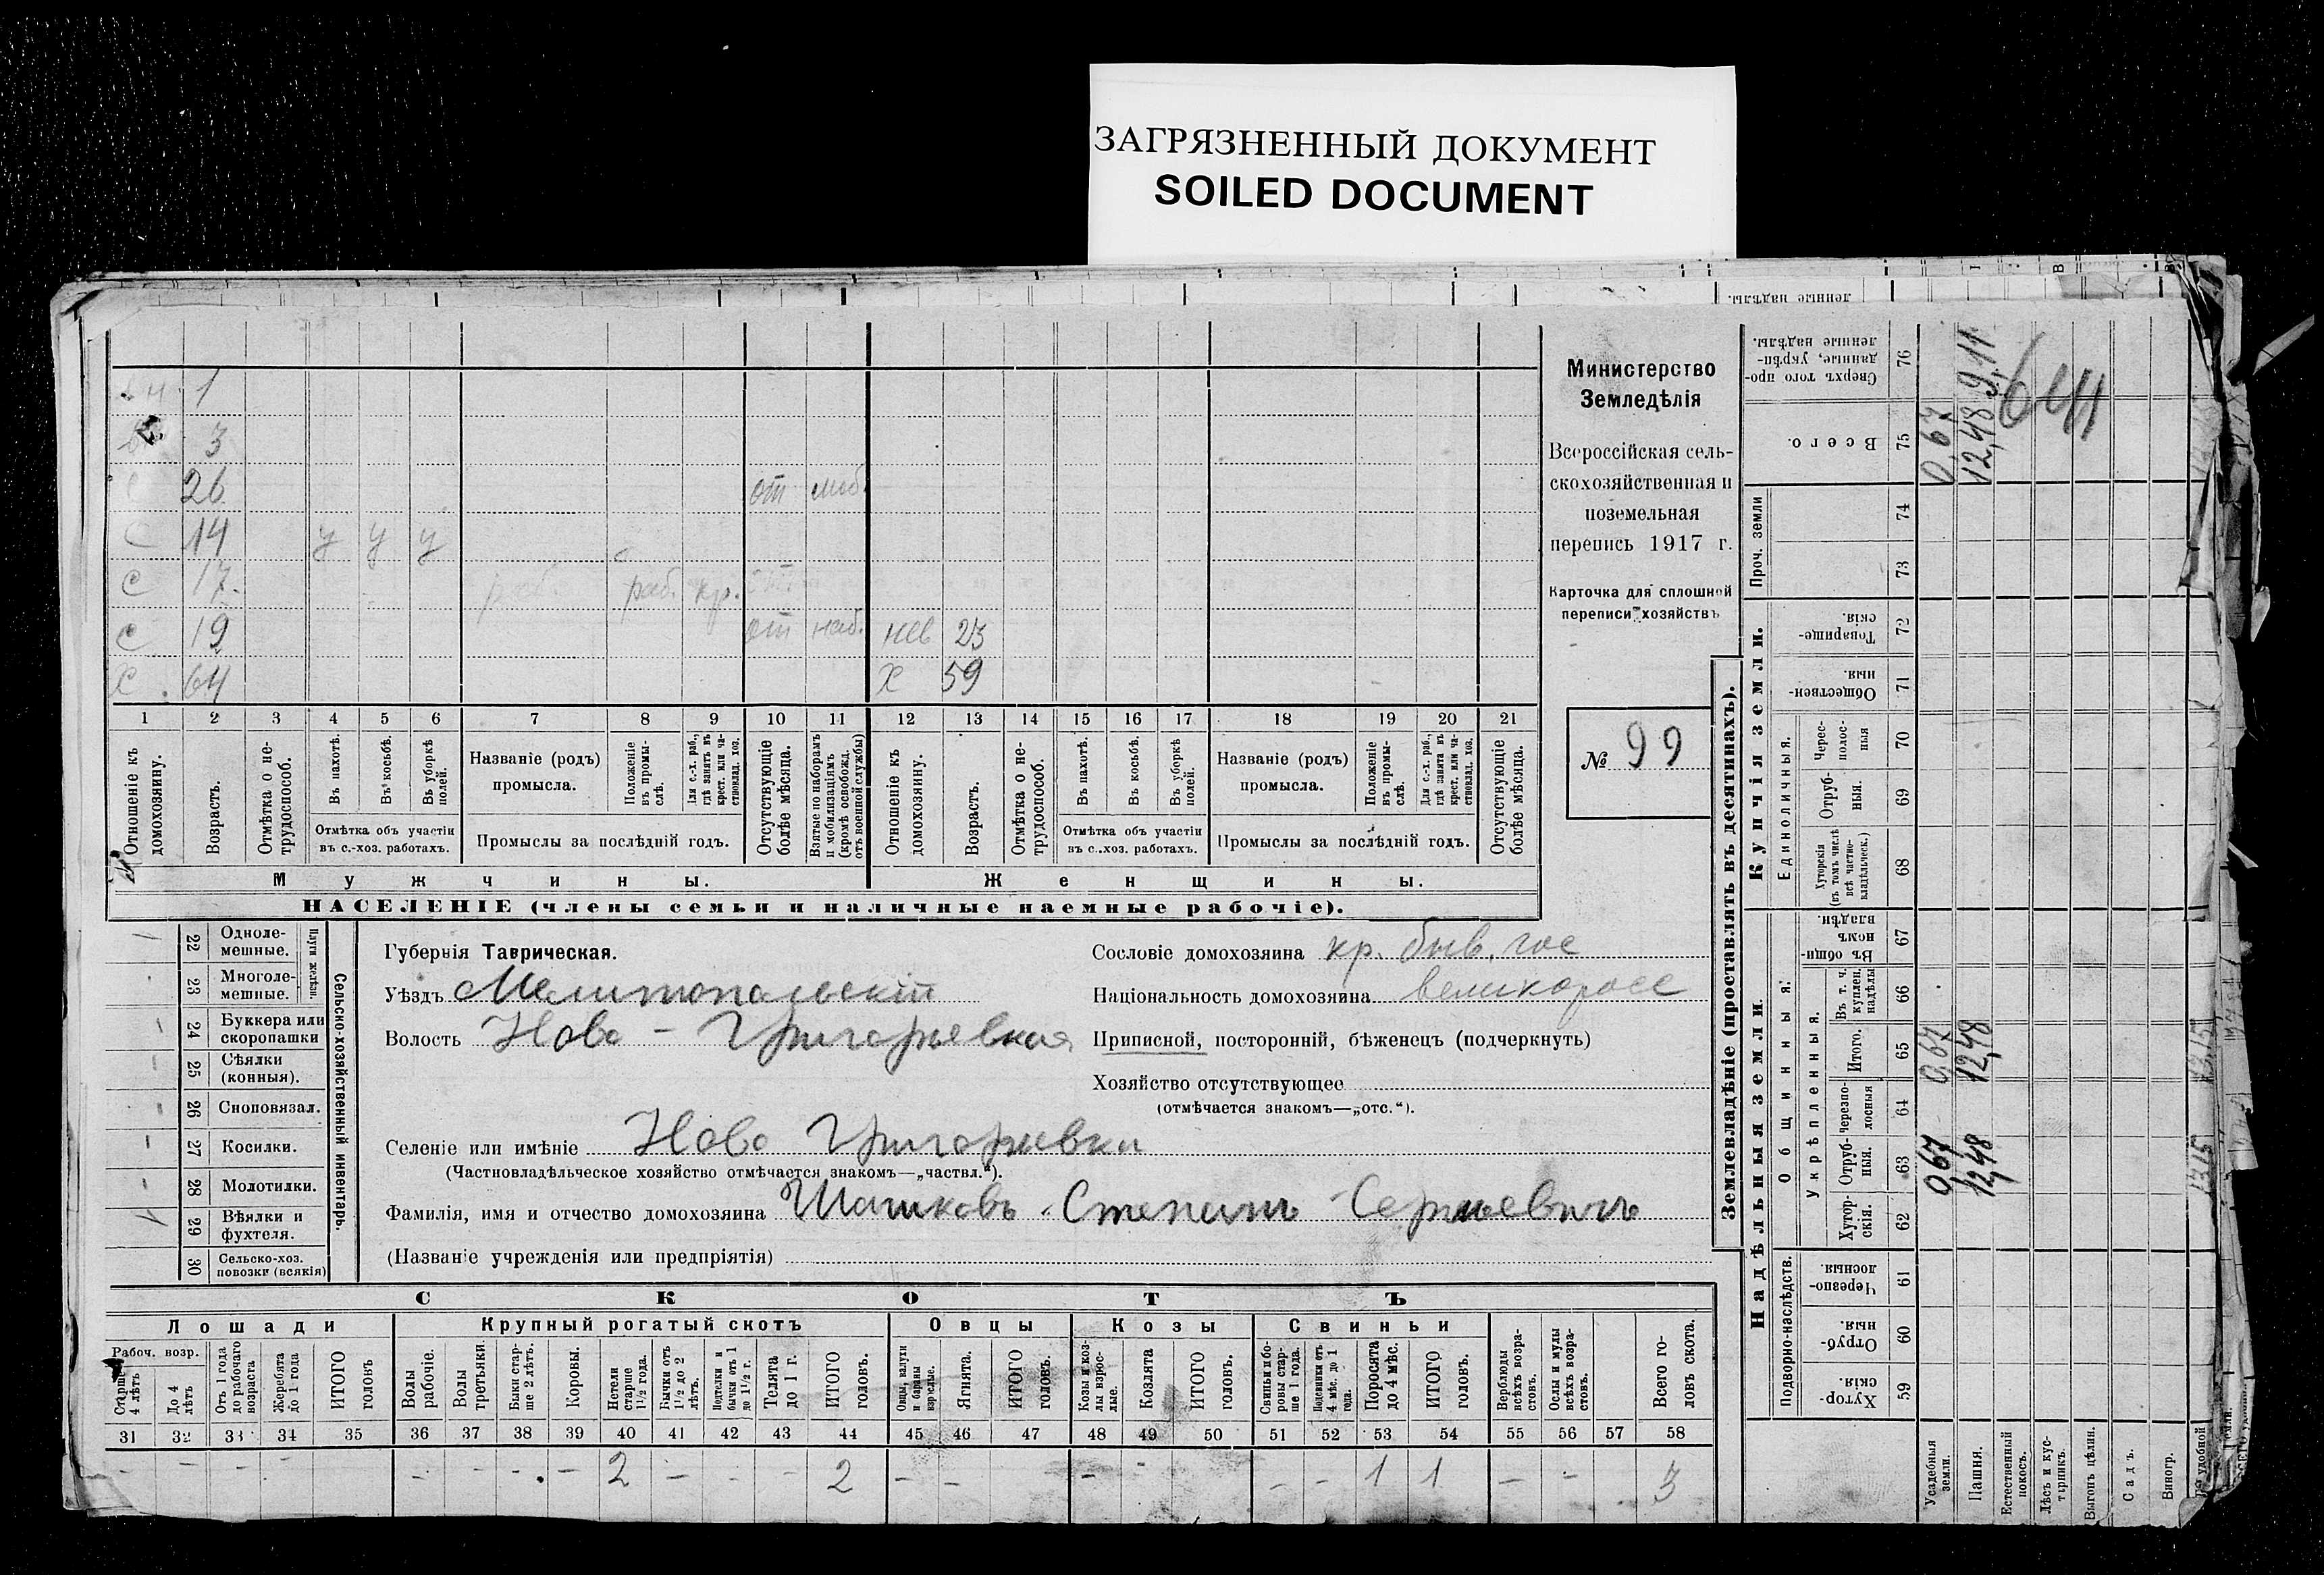 ЗАГРЯЗНЕННЫЙ ДОКУМЕНТ
SOILED DOCUMENT
Министерство
Земледѣлія
Всероссійская сель-
скохозяйственная и
поземельная
перепись 1917 г.
Карточка для сплошной
переписи хозяйствъ
№ 99
1
3
26 от моб.
14 у у у с
с 17. раб. кр.
с 19 от наб. нев 23
х 64 х 59
1 2 3 4 5 6 7 8 9 10 11 12 13 14 15 16 17 18 19 20 21
Отношеніе къ домохозяину.
Возрастъ.
Отмѣтка о нетрудоспособ.
Въ пахотѣ.
Въ косьбѣ.
Въ уборкѣ полей.
Отмѣтка объ участіи
въ с.-хоз. работахъ.
Названіе (родъ)
промысла.
Положеніе въ промыслѣ.
Для с.-х. раб., гдѣ занятъ въ крест. или частновлад. хоз.
Промыслы за послѣдній годъ.
Отсутствующіе болѣе мѣсяца.
Взятые по наборамъ и мобилизаціямъ (кромѣ освобожд. отъ военной службы)
Отношеніе къ домохозяину.
Возрастъ.
Отмѣтка о нетрудоспособ.
Въ пахотѣ.
Въ косьбѣ.
Въ уборкѣ полей.
Отмѣтка объ участіи
въ с..хоз. работахъ.
Названіе (родъ)
промысла.
Положеніе въ промыслѣ.
Для с.-х. раб., гдѣ занята въ крест. или частновлад. хоз.
Промыслы за послѣдній годъ.
Отсутствующіе болѣе мѣсяца.
Мужчины. Женщины.
НАСЕЛЕНІЕ (члены семьи и наличные наемные рабочіе).
Сельско-хозяйственный инвентарь.
Плуги желѣзн.
22 Одноле-
мешные.
23 Многоле-
мешные.
24 Буккера или
скоропашки
25 Сѣялки
(конныя).
26 Сноповязал.
27 Косилки.
28 Молотилки.
29 Вѣялки и
фухтеля. 1
30 Сельско-хоз.
повозки (всякія)
Губернія Таврическая.
Уѣздъ Мелитопольскій
Волость Ново-Григорьевская
Селеніе или имѣніе Ново Григорьевка
(Частновладѣльческое хозяйство отмѣчается знакомъ—„частвл.“).
Фамилія, имя и отчество домохозяина Шашковъ Степанъ Сергѣевичъ
(Названіе учрежденія или предпріятія)
Сословіе домохозяина кр. быв. гос
Національность домохозяина великоросс
Приписной, посторонній, бѣженецъ (подчеркнуть)
Хозяйство отсутствующее
(отмѣчается знакомъ—„отс.“).
СКОТЪ
Лошади Крупный рогатый скотъ Овцы Козы Свиньи
Рабоч. возр.
Старше 4 лѣтъ
До 4 лѣтъ
Отъ 1 года до рабочаго возраста
Жеребята до 1 года
ИТОГО головъ
Волы рабочіе.
Волы третьяки.
Быки старше 2 лѣтъ.
Коровы.
Нетели старше 1½ года.
Бычки отъ 1½ до 2 лѣтъ.
Подтелки и бычки отъ 1 до 1½ г.
Телята до 1 г.
ИТОГО головъ.
Овцы, валухи и бараны взрослые.
Ягнята.
ИТОГО головъ.
Козы и козлы взрослые.
Козлята
ИТОГО головъ.
Свиньи и боровы старше 1 года.
Подсвинки отъ 4 мѣс. до 1 года.
Поросята до 4 мѣс.
ИТОГО головъ.
Верблюды всѣхъ возрастовъ.
Ослы и мулы всѣхъ возрастовъ.
Всего головъ скота.
31 32 33 34 35 36 37 38 39 40 41 42 43 44 45 46 47 48 49 50 51 52 53 54 55 56 57 58
- - - - - - - - 2 - - - 2 - - - - - - - 1 1 - - 3
Землевладѣніе (проставлять въ десятинахъ).
Надѣльныя земли.
Купчія земли.
Проч. земли
Подворно-наслѣдств.
Общинныя:
Укрѣпленныя.
Единоличныя.
Хуторскія. 59
Отрубныя. 60
Черезполосныя. 61
Хуторскія. 62
Отрубныя. 63
Черезполосныя 64
Итого. 65
Въ т. ч. куплен. надѣлы 66
Въ общинномъ владѣн. 67
Хуторскія (въ томъ числѣ всѣ частновладѣльческ.) 68
Отрубныя. 69
Черезполосныя 70
Общественныя 71
Товарищескія. 72
73
74
Всего. 75
Сверхъ того проданные, укрѣпленные надѣлы. 76
Усадебныя земли. 0,67 0,67 0,67
Пашня. 12,48 12,48 12,48 9,11
Естественный покосъ.
Лѣсъ и кустарникъ.
Выгонъ цѣлин.
Садъ.
Виногр.